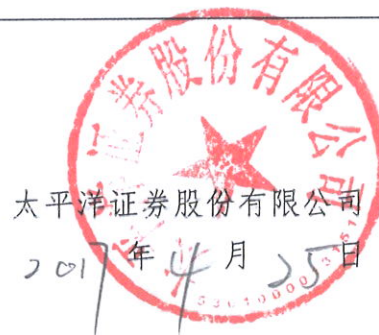 太平洋证券股份有限公司
太平洋证券股份有限公司
2017年4月25日